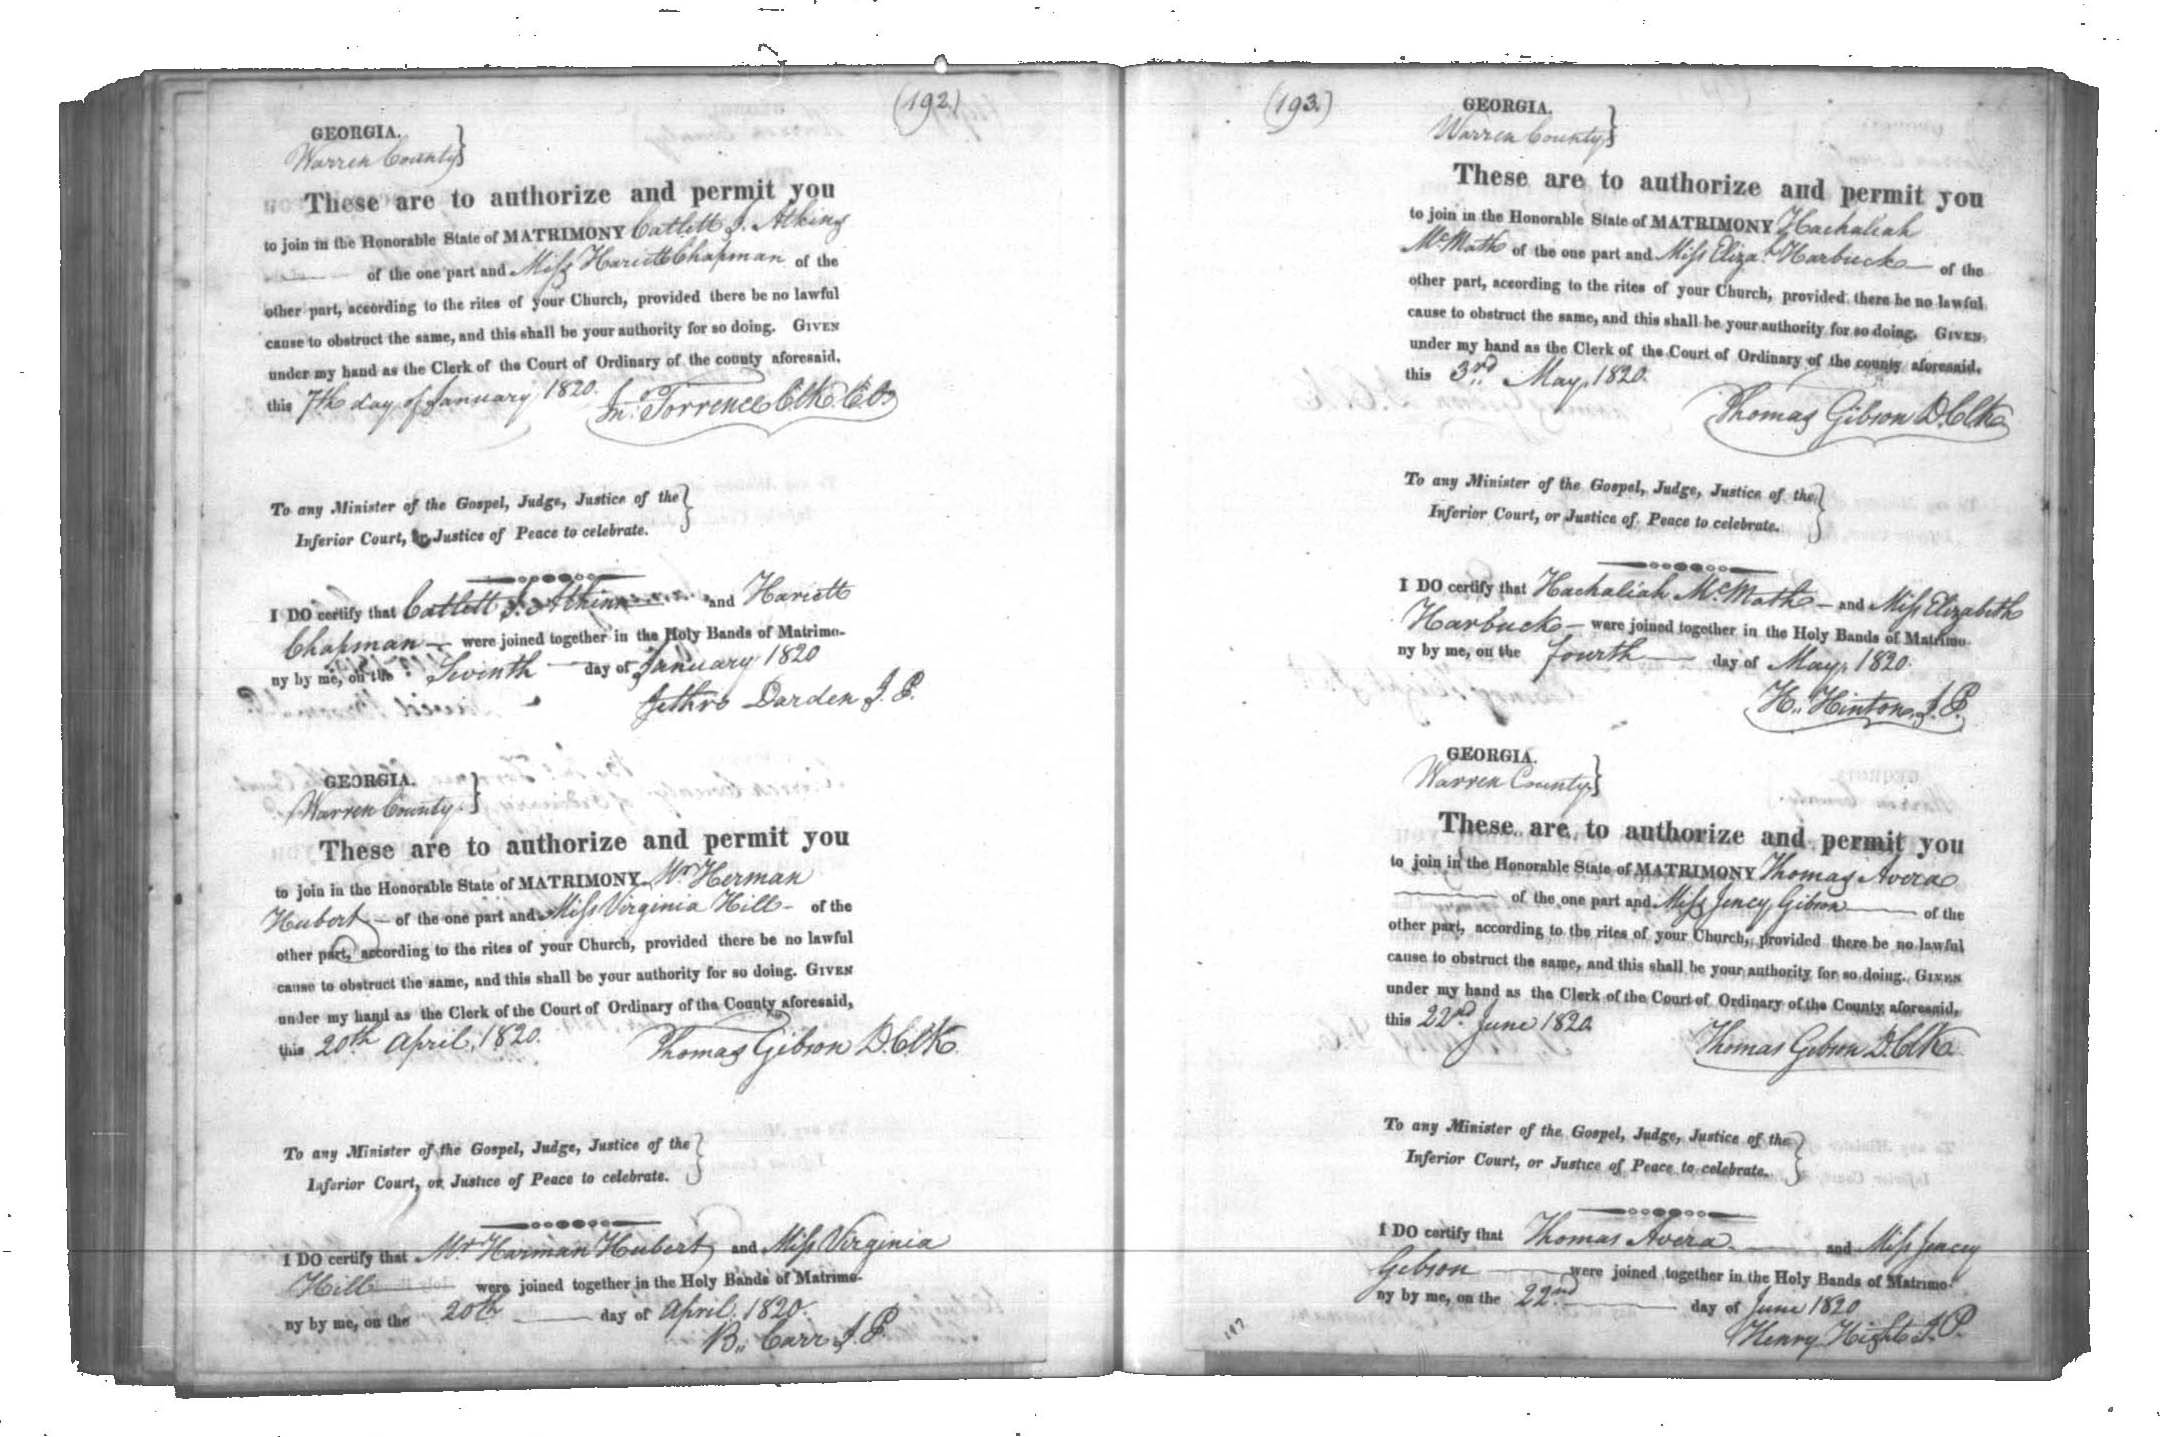 (192.)
GEORGIA.
Warren County }
These are to authorize and permit you
to join in the Honorable State of MATRIMONY Catlett J. Atkins
of the one part and Miss Hariett Chapman of the
other part, according to the rites of your Church, provided there be no lawful
cause to obstruct the same, and this shall be your authority for so doing. GIVEN
under my hand as the Clerk of the Court of Ordinary of the county aforesaid,
this 7th day of January 1820. Jno. Torrence Clk. C.O.
To any Minister of the Gospel, Judge, Justice of the }
Inferior Court, or Justice of Peace to celebrate.
I DO certify that Catlett J. Atkins and Hariett
Chapman — were joined together in the Holy Bands of Matrimo-
ny by me, on the Seventh — day of January 1820
Jethro Darden J. P.
GEORGIA.
Warren County. }
These are to authorize and permit you
to join in the Honorable State of MATRIMONY Mr Herman
Hubert — of the one part and Miss Virginia Hill — of the
other part, according to the rites of your Church, provided there be no lawful
cause to obstruct the same, and this shall be your authority for so doing. GIVEN
under my hand as the Clerk of the Court of Ordinary of the County aforesaid,
this 20th April, 1820. Thomas Gibson D. Clk
To any Minister of the Gospel, Judge, Justice of the }
Inferior Court, or Justice of Peace to celebrate.
I DO certify that Mr Harman Hubert and Miss Virginia
Hill — were joined together in the Holy Bands of Matrimo-
ny by me, on the 20th — day of April. 1820.
B,, Carr J. P.
(193.)
GEORGIA.
Warren County }
These are to authorize and permit you
to join in the Honorable State of MATRIMONY Hachaliah
McMath of the one part and Miss Eliza.h Harbuck — of the
other part, according to the rites of your Church, provided there be no lawful
cause to obstruct the same, and this shall be your authority for so doing. GIVEN
under my hand as the Clerk of the Court of Ordinary of the county aforesaid,
this 3rd May, 1820.
Thomas Gibson D. Clk
To any Minister of the Gospel, Judge, Justice of the }
Inferior Court, or Justice of Peace to celebrate.
I DO certify that Hachaliah McMath — and Miss Elizabeth
Harbuck — were joined together in the Holy Bands of Matrimo-
ny by me, on the fourth — day of May, 1820.
H,, Hinton, J. P.
GEORGIA.
Warren County }
These are to authorize and permit you
to join in the Honorable State of MATRIMONY Thomas Avera
— of the one part and Miss Jency Gibson — of the
other part, according to the rites of your Church, provided there be no lawful
cause to obstruct the same, and this shall be your authority for so doing. GIVEN
under my hand as the Clerk of the Court of Ordinary of the County aforesaid,
this 22nd June 1820. Thomas Gibson D. Clk
To any Minister of the Gospel, Judge, Justice of the }
Inferior Court, or Justice of Peace to celebrate.
I DO certify that Thomas Avera. — and Miss Jencey
Gibson — were joined together in the Holy Bands of Matrimo-
ny by me, on the 22nd — day of June 1820
Henry Hight J. P.